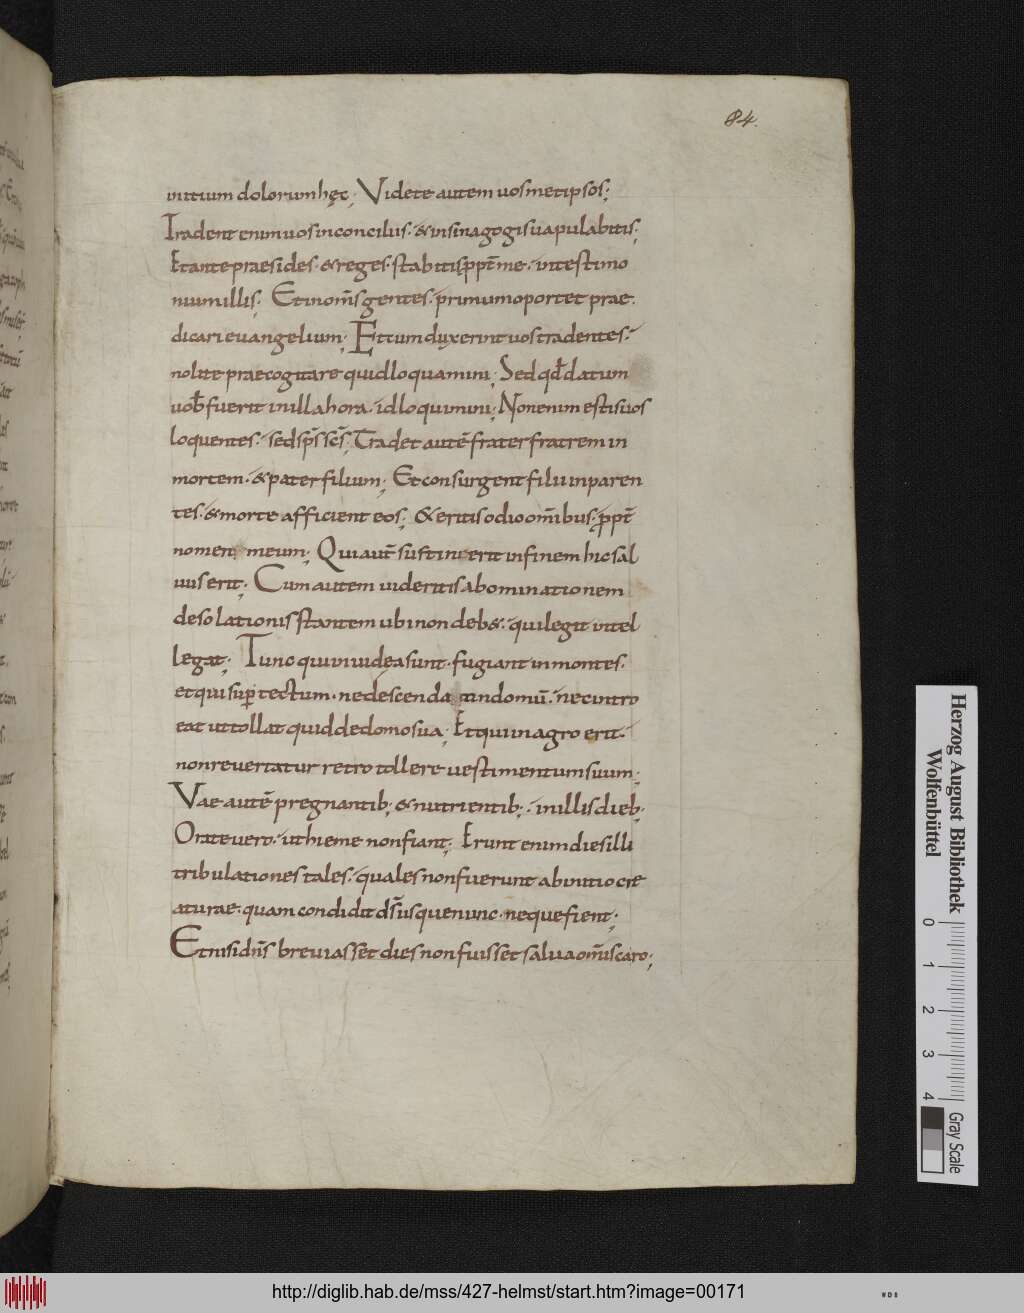 84.
initium dolorum hęc; Videte autem uosmetipsos;
Tradent enim uos in conciliis. & in sinagogis uapulabitis;
Et ante praesides & reges stabitis ppt̄ me. in testimo
nium illis; Et in om̄s gentes. primum oportet prae
dicari euangelium; Et cum duxerint uos tradentes.
nolite praecogitare quid loquamini; Sed qđ datum
uob̄ fuerit in illa hora. id loquimini; Non enim estis uos
loquentes. sed sp̄s sc̄s; Tradet autē frater fratrem in
mortem. & pater filium; Et consurgent filii in paren
tes. & morte afficient eos; & eritis odio om̄ibus. ppt̄
nomen meum; Qui aut̄ sustinuerit in finem hic sal
uus erit; Cum autem uideritis abominationem
desolationis stantem ubi non deb&. qui legit intel
legat; Tunc qui in iudea sunt. fugiant in montes.
et qui sup̄ tectum. ne descendat in domū. nec intro
eat ut tollat quid de domo sua; Et qui in agro erit.
non reuertatur retro tollere uestimentum suum;
Vae autē pregnantib; & nutrientib; in illis dieb;
Orate uero. ut hieme non fiant; Erunt enim dies illi
tribulationes tales. quales non fuerunt ab initio cre
aturae. quam condidit ds̄ usque nunc. neque fient;
Et nisi dn̄s breuiasset dies non fuisset salua om̄is caro;
Herzog August Bibliothek
Wolfenbüttel
0 1 2 3 4
Gray Scale
http://diglib.hab.de/mss/427-helmst/start.htm?image=00171